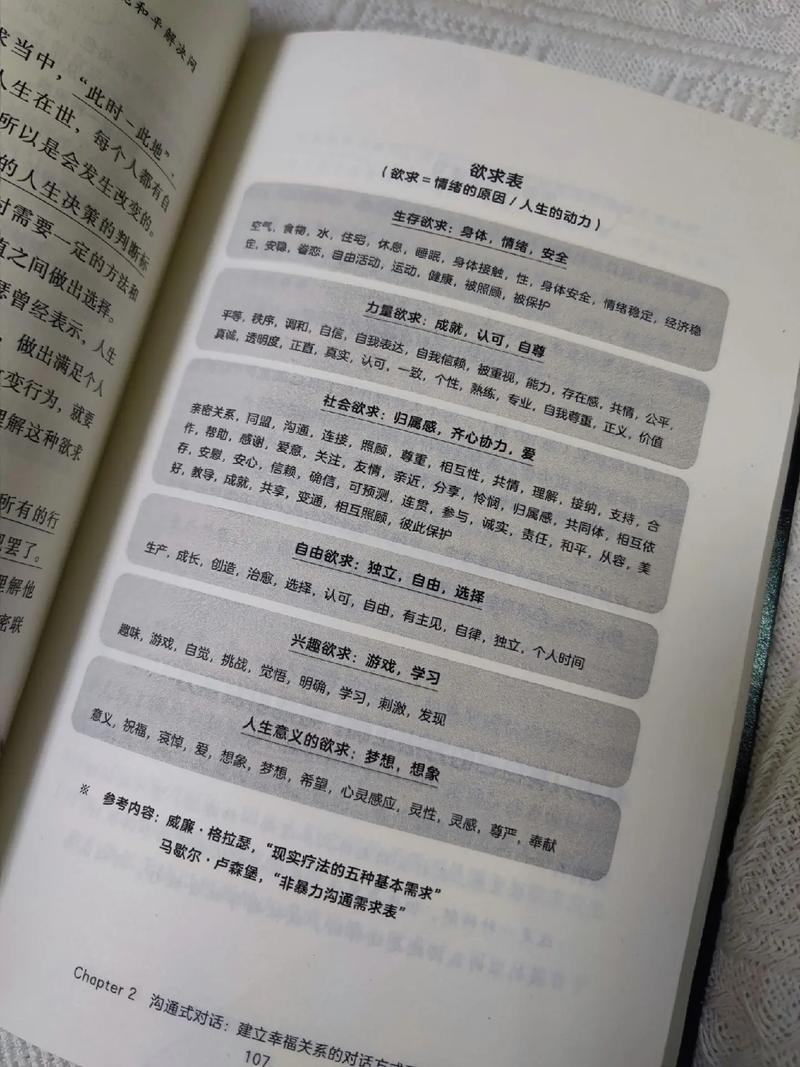 和平解决问
求当中，“此时－此地”，
人生在世，每个人都有自
所以是会发生改变的。
的人生决策的判断标
时需要一定的方法和
值之间做出选择。
瑟曾经表示，人生
，做出满足个人
变行为，就要
理解这种欲求
所有的行
已罢了。
理解他
密联
欲求表
（欲求＝情绪的原因 / 人生的动力）
生存欲求：身体，情绪，安全
空气，食物，水，住宅，休息，睡眠，身体接触，性，身体安全，情绪稳定，经济稳
定，安稳，眷恋，自由活动，运动，健康，被照顾，被保护
力量欲求：成就，认可，自尊
平等，秩序，调和，自信，自我表达，自我信赖，被重视，能力，存在感，共情，公平，
真诚，透明度，正直，真实，认可，一致，个性，熟练，专业，自我尊重，正义，价值
社会欲求：归属感，齐心协力，爱
亲密关系，同盟，沟通，连接，照顾，尊重，相互性，共情，理解，接纳，支持，合
作，帮助，感谢，爱意，关注，友情，亲近，分享，怜悯，归属感，共同体，相互依
存，安慰，安心，信赖，确信，可预测，连贯，参与，诚实，责任，和平，从容，美
好，教导，成就，共享，变通，相互照顾，彼此保护
自由欲求：独立，自由，选择
生产，成长，创造，治愈，选择，认可，自由，有主见，自律，独立，个人时间
兴趣欲求：游戏，学习
趣味，游戏，自觉，挑战，觉悟，明确，学习，刺激，发现
人生意义的欲求：梦想，想象
意义，祝福，哀悼，爱，想象，梦想，希望，心灵感应，灵性，灵感，尊严，奉献
※ 参考内容：威廉·格拉瑟，“现实疗法的五种基本需求”
马歇尔·卢森堡，“非暴力沟通需求表”
Chapter 2 沟通式对话：建立幸福关系的对话方式
107